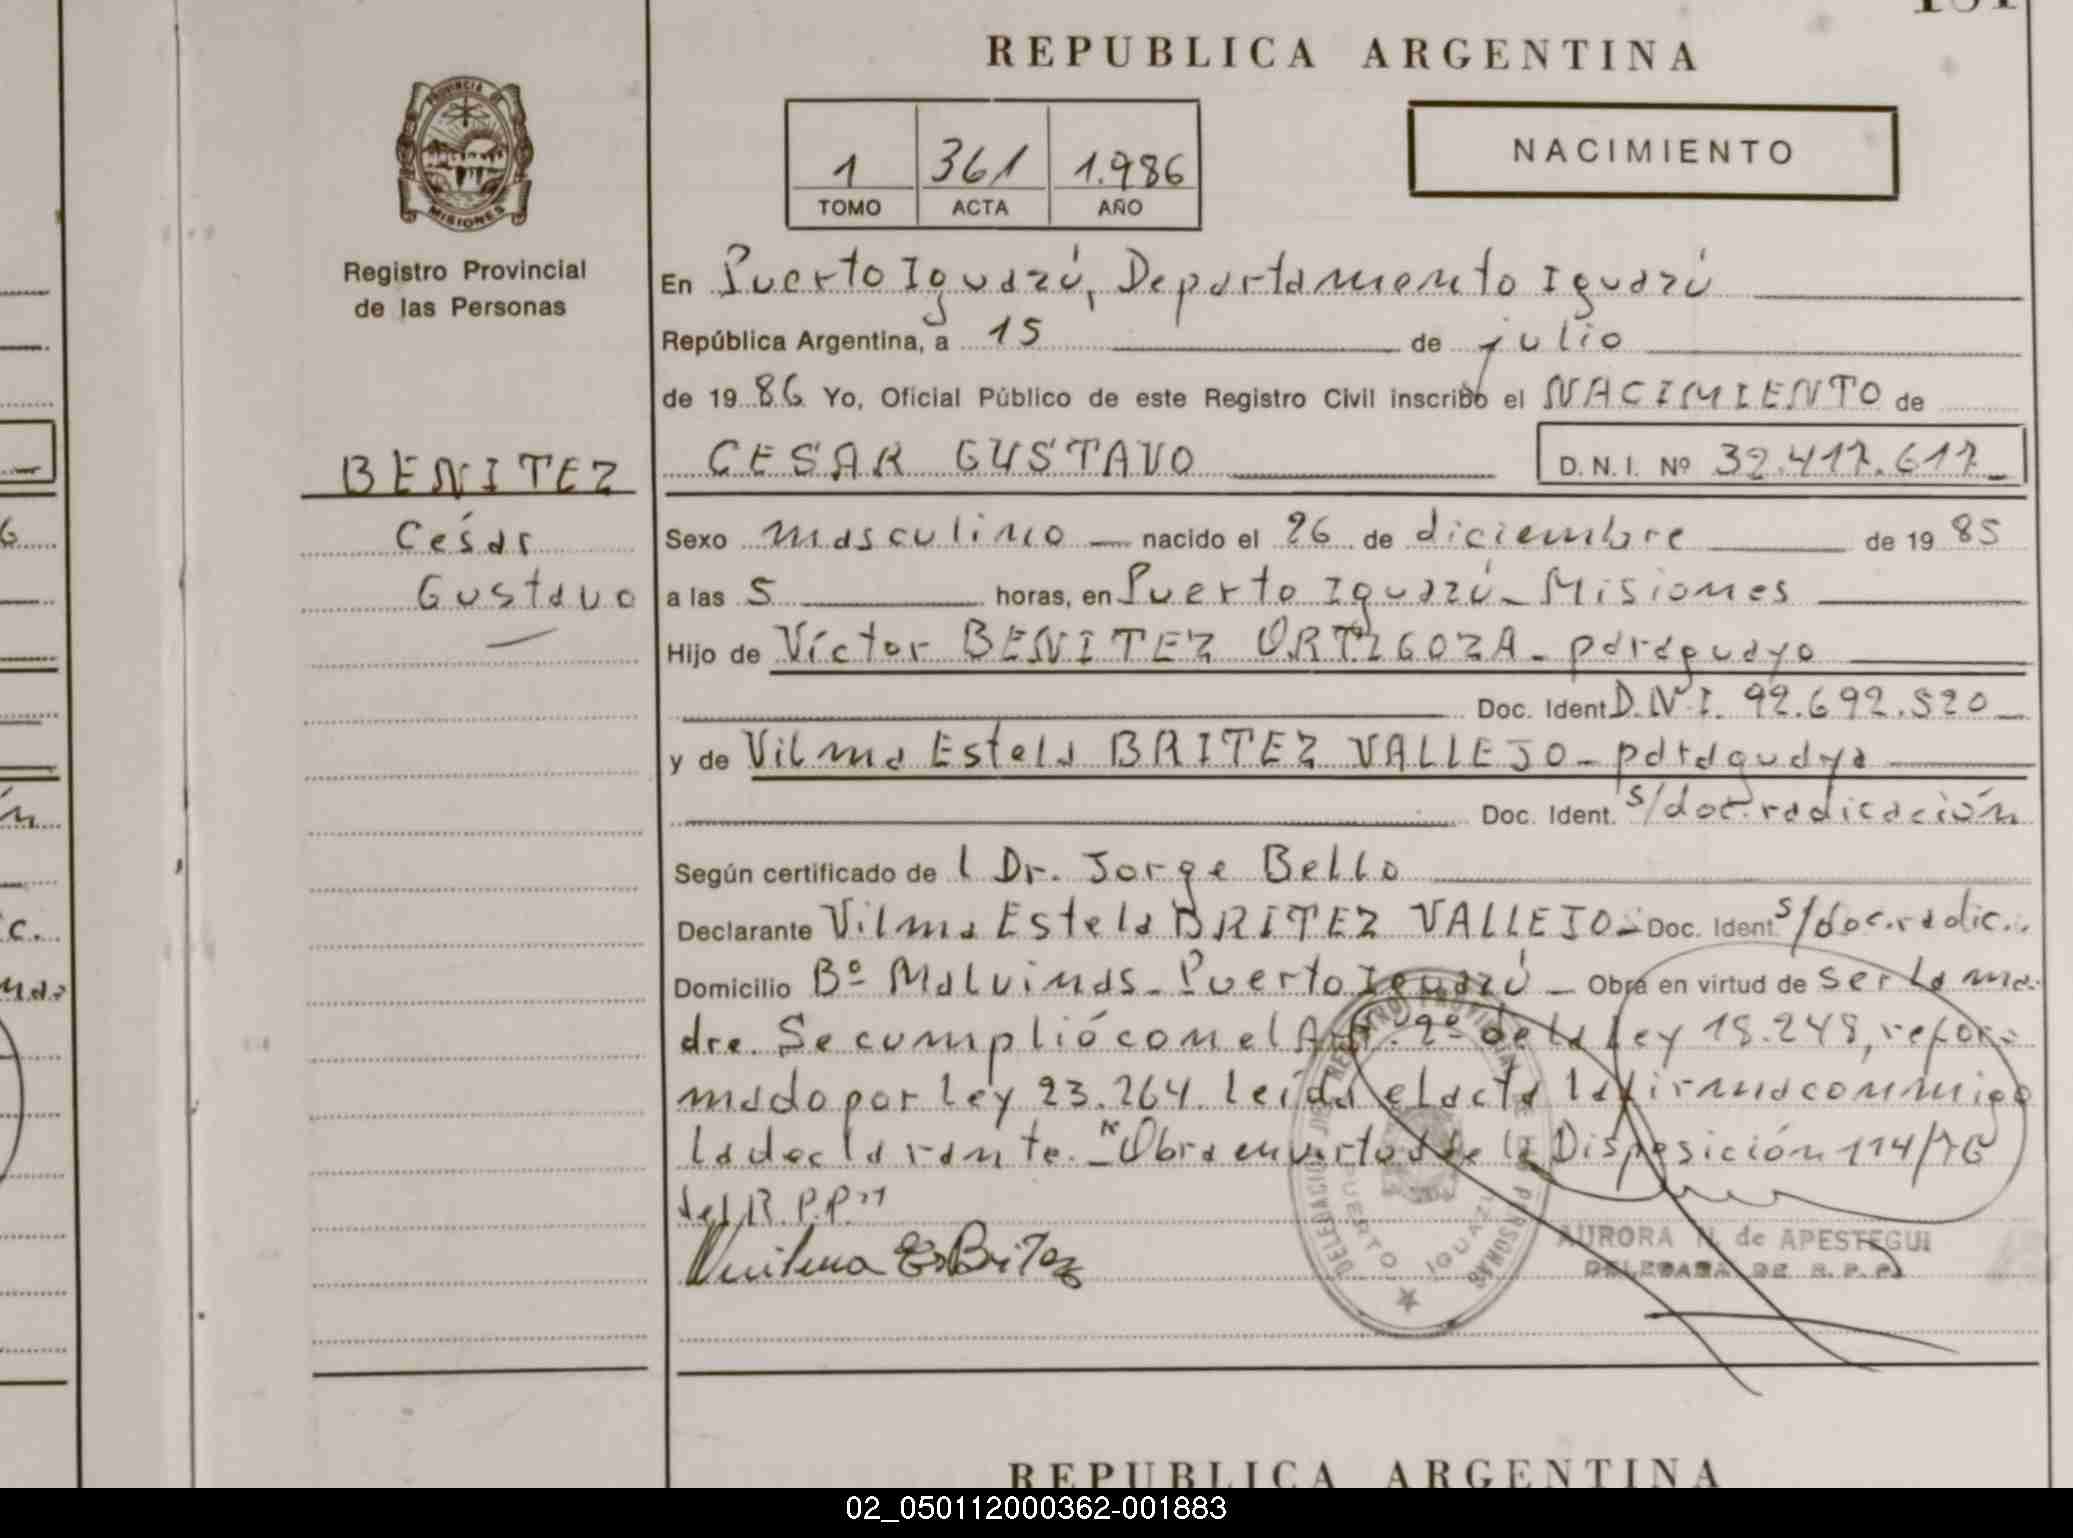 REPUBLICA ARGENTINA
PROVINCIA DE
MISIONES
Registro Provincial
de las Personas
1 361 1.986
TOMO ACTA AÑO
NACIMIENTO
En Puerto Iguazú, Departamento Iguazú
República Argentina, a 15 de julio
de 1986 Yo, Oficial Público de este Registro Civil inscribo el NACIMIENTO de
BENITEZ
CESAR GUSTAVO D.N.I. Nº 32.417.617
César
Sexo masculino nacido el 26 de diciembre de 1985
Gustavo
a las 5 horas, en Puerto Iguazú - Misiones
Hijo de Víctor BENITEZ ORTIGOZA - paraguayo
Doc. Ident D.N.I. 92.692.520
y de Vilma Estela BRITEZ VALLEJO - paraguaya
Doc. Ident. s/doc.radicación
Según certificado de l Dr. Jorge Bello
Declarante Vilma Estela BRITEZ VALLEJO - Doc. Ident s/doc.radic.
Domicilio Bº Malvinas - Puerto Iguazú - Obra en virtud de ser la ma-
dre. Se cumplió con el Art. 2º de la Ley 18.248, refor-
mado por Ley 23.264. Leída el acta la firma conmigo
la declarante. - "Obra en virtud de la Disposición 114/76
del R.P.P."
Vilma E. Britez
DELEGACION DEL REGISTRO PROVINCIAL DE LAS PERSONAS
PUERTO IGUAZU
AURORA N. de APESTEGUI
DELEGADA DE R.P.P.
REPUBLICA ARGENTINA
02_050112000362-001883